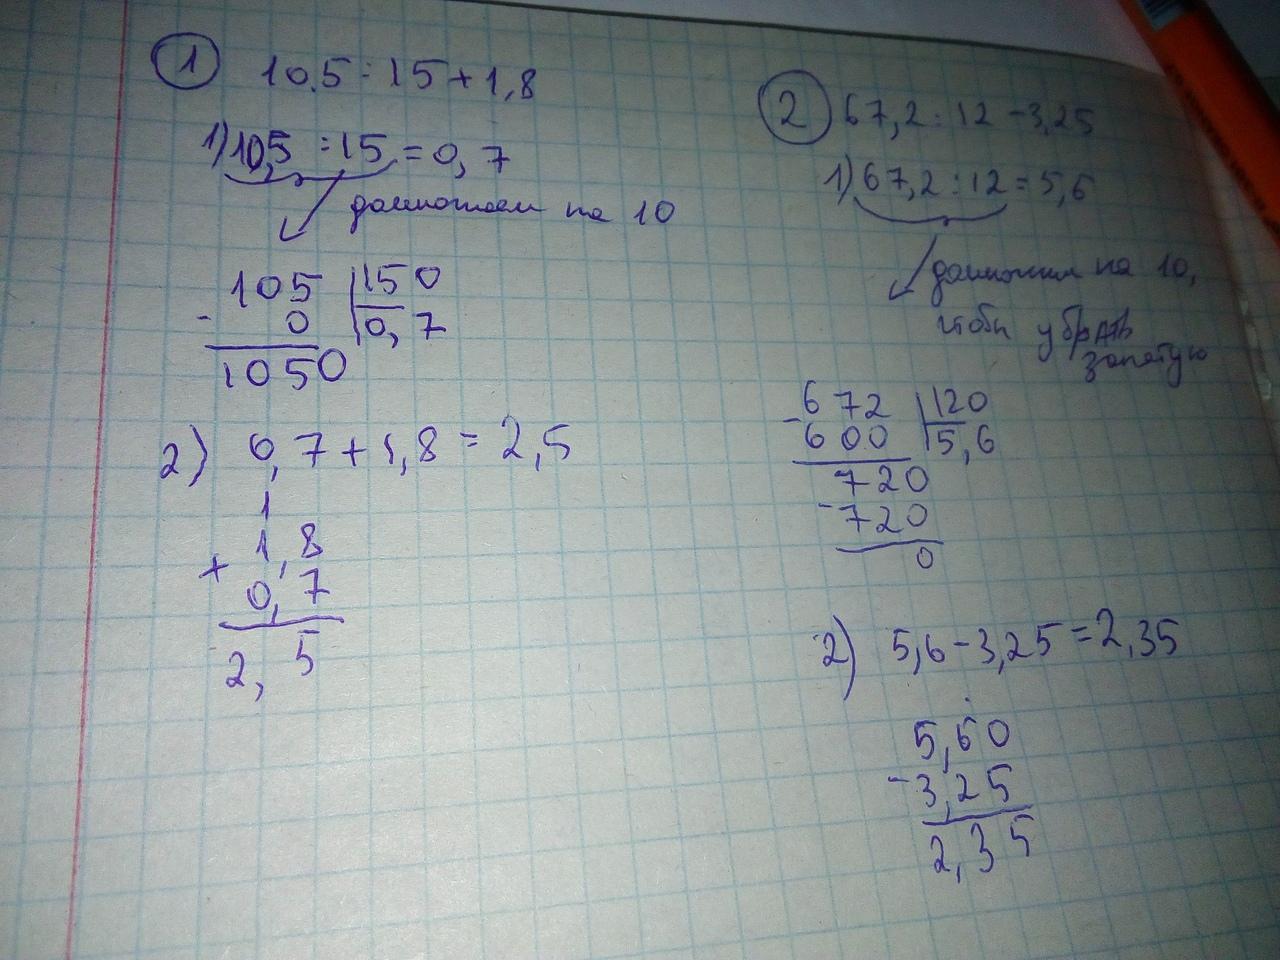 1 10,5 : 15 + 1,8
1) 10,5 : 15 = 0,7
домножаем на 10
105 |150
- 0 |0,7
1050
2) 0,7 + 1,8 = 2,5
1
1,8
+ 0,7
2,5
2 67,2 : 12 - 3,25
1) 67,2 : 12 = 5,6
домножим на 10,
чтобы убрать
запятую
672 |120
- 600 |5,6
720
- 720
0
2) 5,6 - 3,25 = 2,35
5,60
- 3,25
2,35